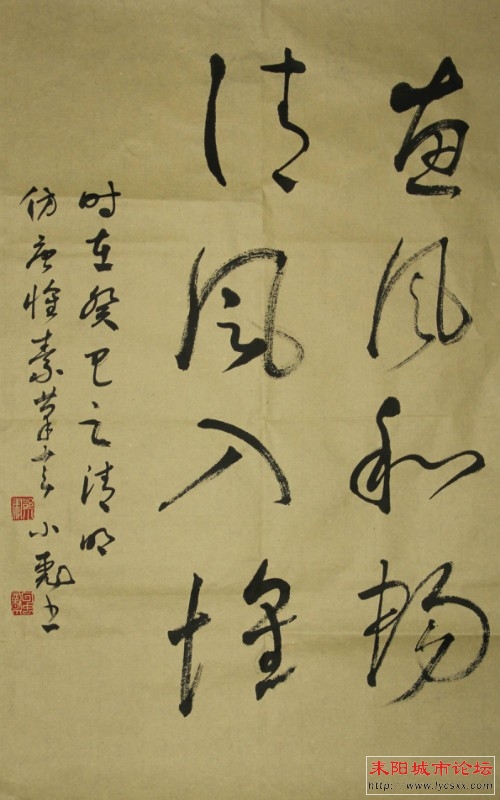 惠风和畅
清风入怀
时在癸巳之清明
仿唐怀素 小彪书
耒阳城市论坛
http://www.lycsxx.com